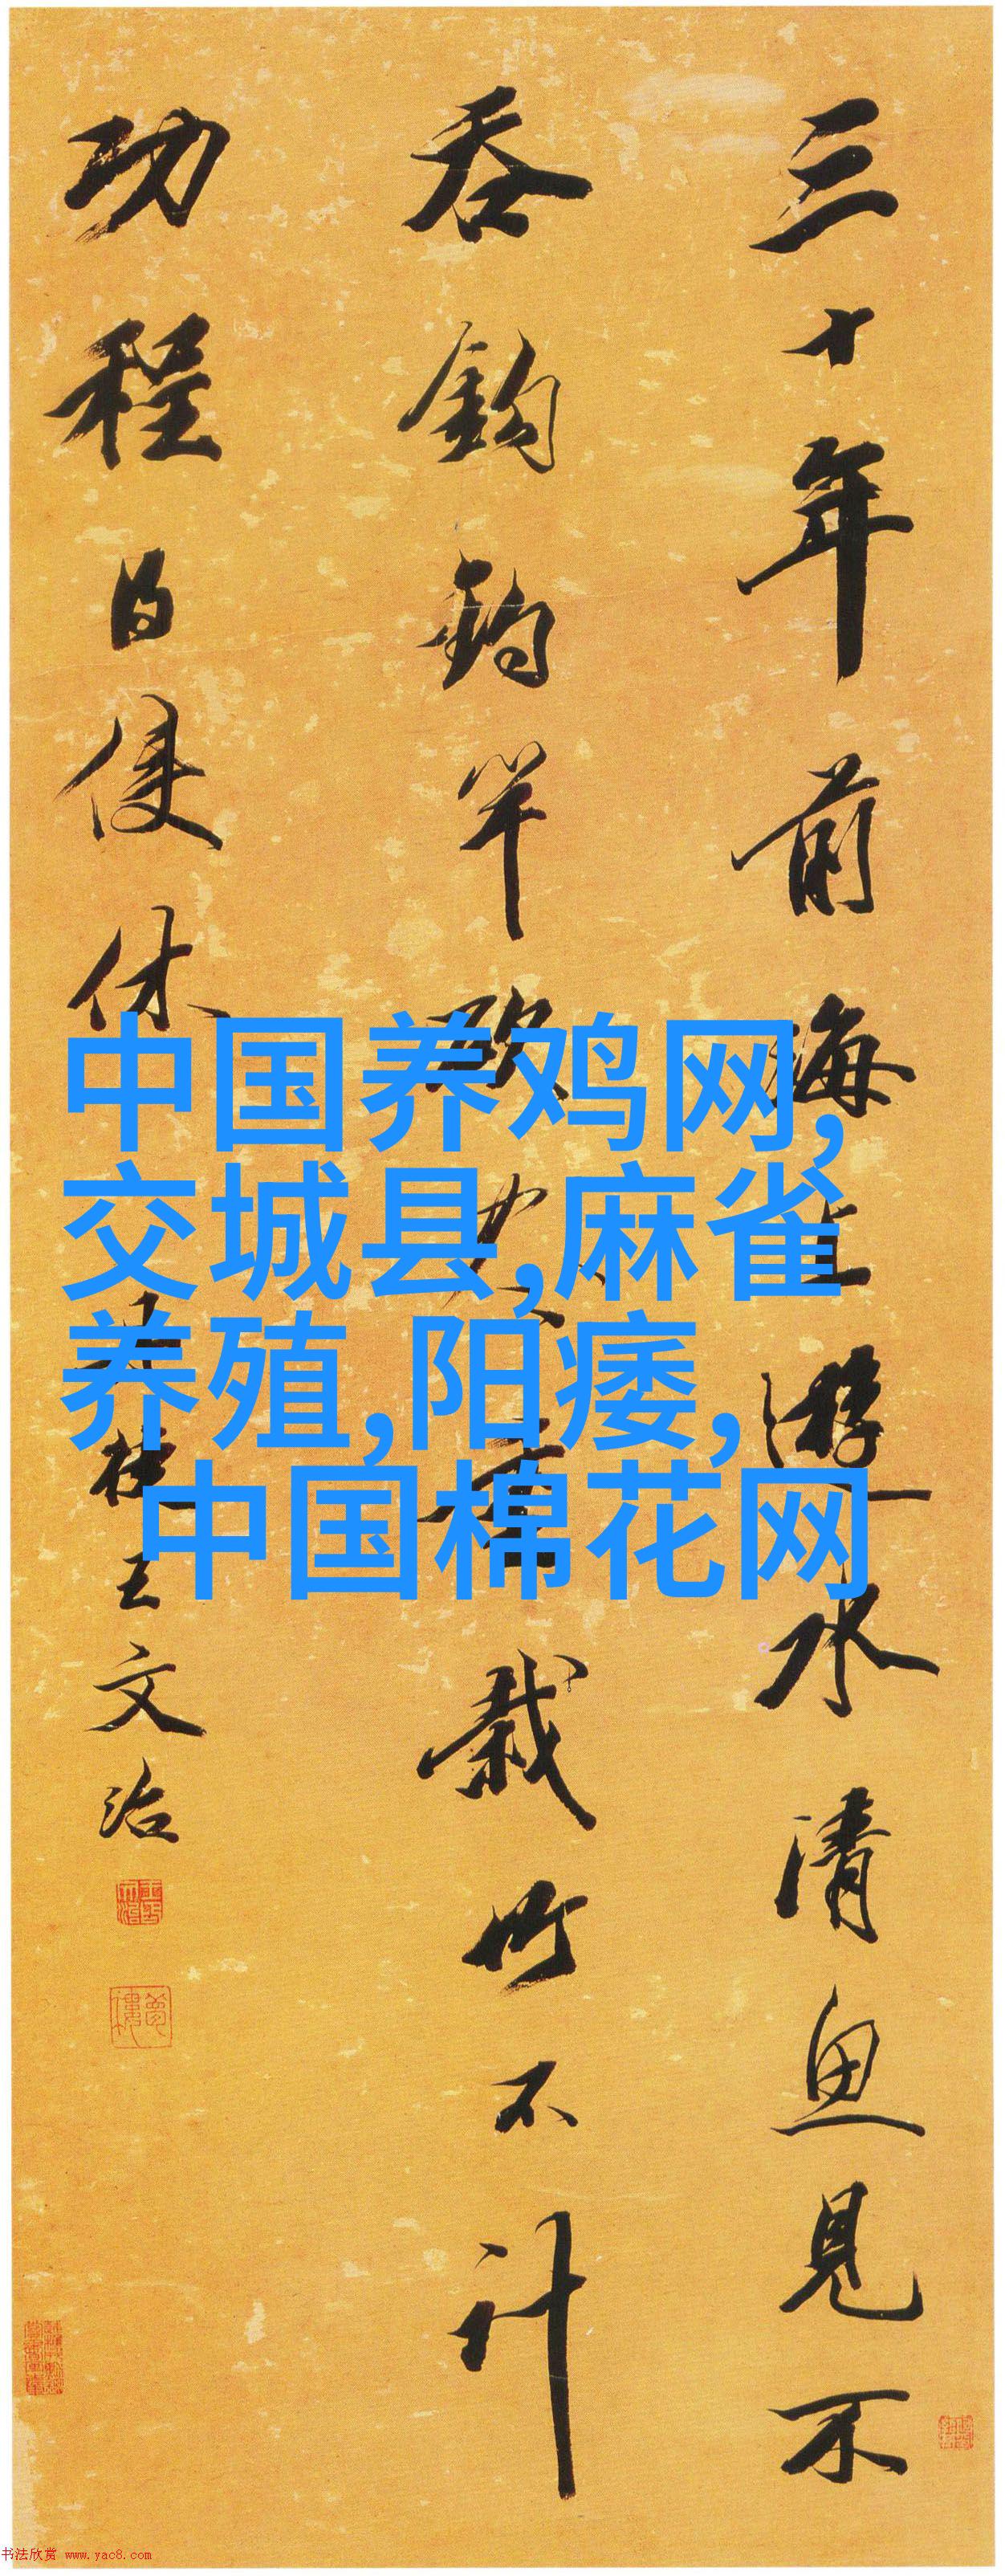 三十年前海上遊水清魚見不
吞鈎釣竿斫盡重栽竹不計
功程得便休
夢樓王文治
中国养鸡网,
交城县,麻雀
养殖,阳痿,
中国棉花网
书法欣赏 www.yac8.com